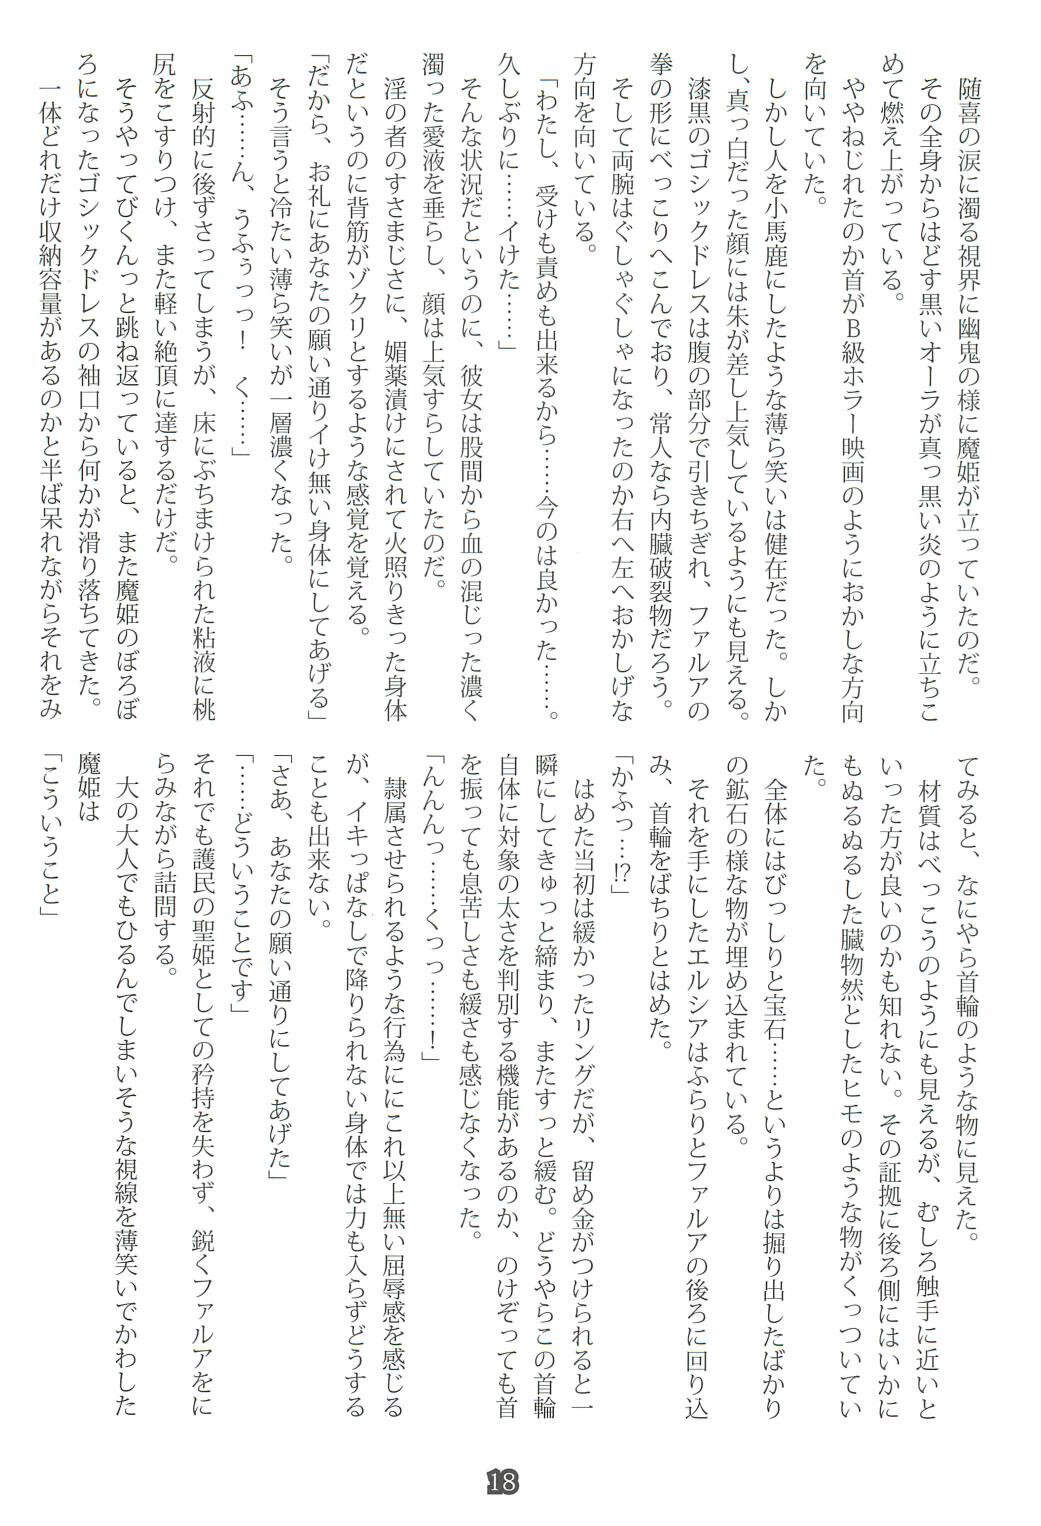 随喜の涙に濁る視界に幽鬼の様に魔姫が立っていたのだ。
その全身からはどす黒いオーラが真っ黒い炎のように立ちこ
めて燃え上がっている。
ややねじれたのか首がＢ級ホラー映画のようにおかしな方向
を向いていた。
しかし人を小馬鹿にしたような薄ら笑いは健在だった。しか
し、真っ白だった顔には朱が差し上気しているようにも見える。
漆黒のゴシックドレスは腹の部分で引きちぎれ、ファルアの
拳の形にべっこりへこんでおり、常人なら内臓破裂物だろう。
そして両腕はぐしゃぐしゃになったのか右へ左へおかしげな
方向を向いている。
「わたし、受けも責めも出来るから……今のは良かった……。
久しぶりに……イけた……」
そんな状況だというのに、彼女は股間から血の混じった濃く
濁った愛液を垂らし、顔は上気すらしていたのだ。
淫の者のすさまじさに、媚薬漬けにされて火照りきった身体
だというのに背筋がゾクリとするような感覚を覚える。
「だから、お礼にあなたの願い通りイけ無い身体にしてあげる」
そう言うと冷たい薄ら笑いが一層濃くなった。
「あふ……ん、うふぅっっ！　く……」
反射的に後ずさってしまうが、床にぶちまけられた粘液に桃
尻をこすりつけ、また軽い絶頂に達するだけだ。
そうやってびくんっと跳ね返っていると、また魔姫のぼろぼ
ろになったゴシックドレスの袖口から何かが滑り落ちてきた。
一体どれだけ収納容量があるのかと半ば呆れながらそれをみ
てみると、なにやら首輪のような物に見えた。
材質はべっこうのようにも見えるが、むしろ触手に近いと
いった方が良いのかも知れない。その証拠に後ろ側にはいかに
もぬるぬるした臓物然としたヒモのような物がくっついてい
た。
全体にはびっしりと宝石……というよりは掘り出したばかり
の鉱石の様な物が埋め込まれている。
それを手にしたエルシアはふらりとファルアの後ろに回り込
み、首輪をばちりとはめた。
「かふっ…!?」
はめた当初は緩かったリングだが、留め金がつけられると一
瞬にしてきゅっと締まり、またすっと緩む。どうやらこの首輪
自体に対象の太さを判別する機能があるのか、のけぞっても首
を振っても息苦しさも緩さも感じなくなった。
「んんんっ……くっっ……！」
隷属させられるような行為ににこれ以上無い屈辱感を感じる
が、イキっぱなしで降りられない身体では力も入らずどうする
ことも出来ない。
「さあ、あなたの願い通りにしてあげた」
「……どういうことです」
それでも護民の聖姫としての矜持を失わず、鋭くファルアをに
らみながら詰問する。
大の大人でもひるんでしまいそうな視線を薄笑いでかわした
魔姫は
「こういうこと」
18